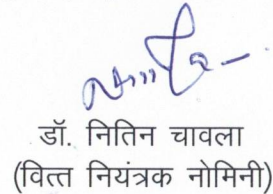 डॉ. नितिन चावला
(वित्त नियंत्रक नोमिनी)